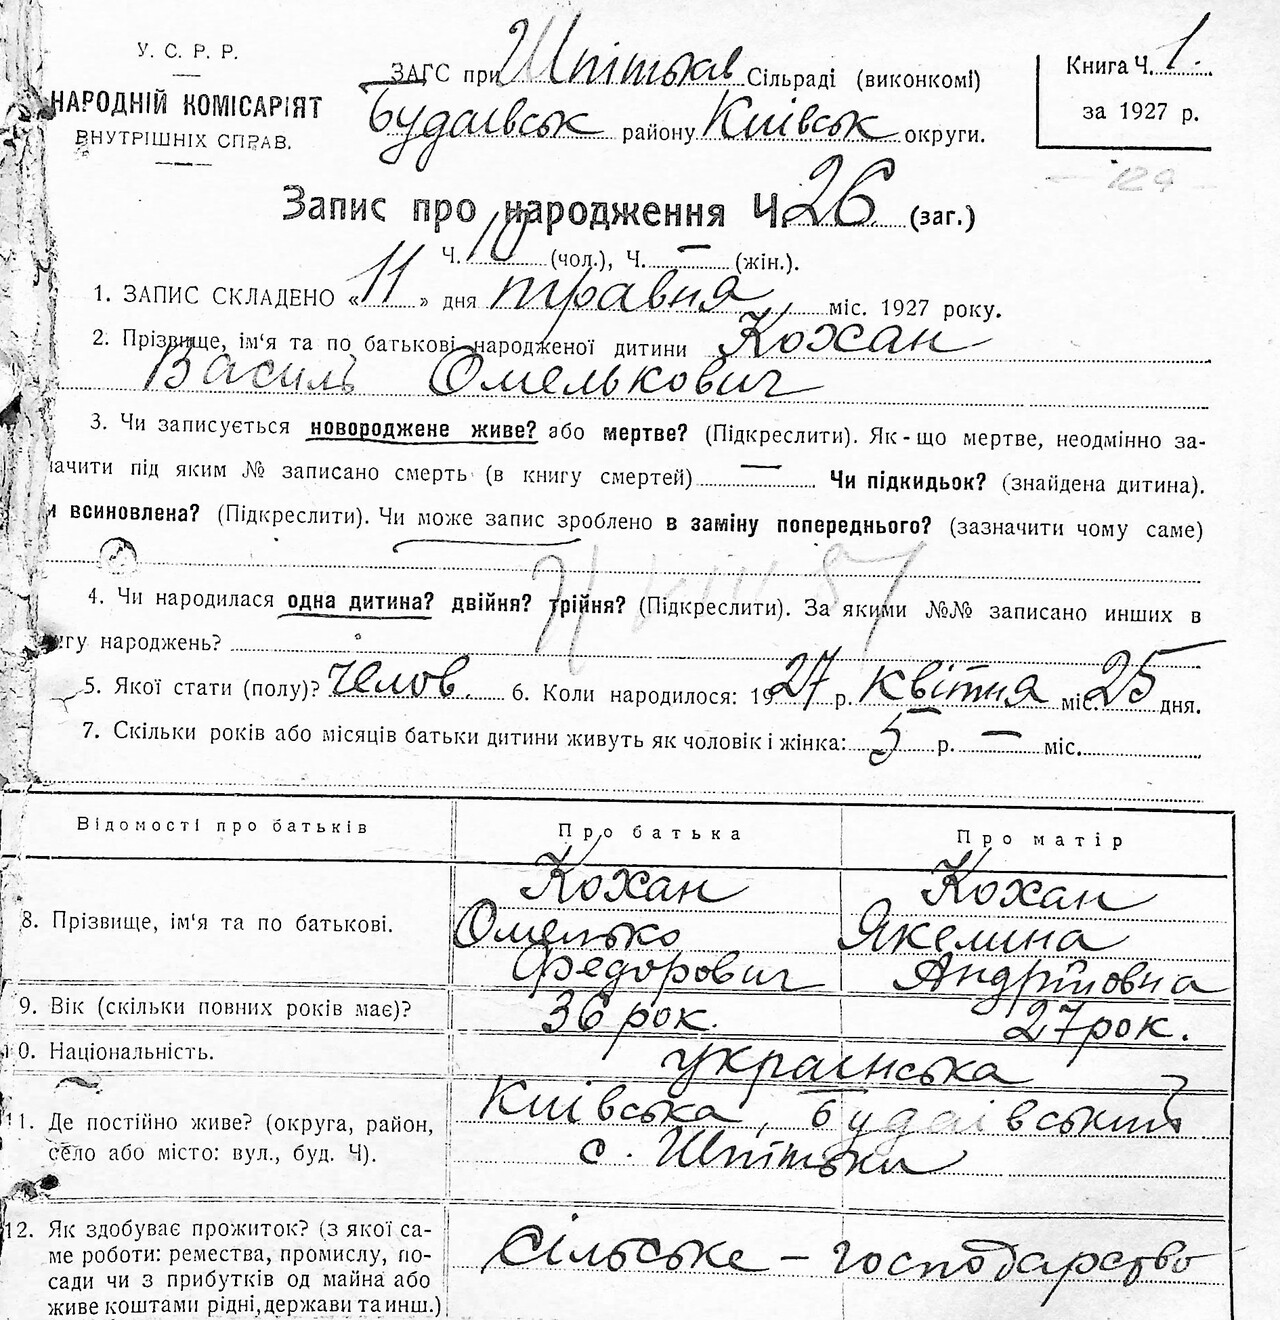 У. С. Р. Р.
НАРОДНІЙ КОМІСАРІЯТ
ВНУТРІШНІХ СПРАВ.
ЗАГС при Шпітьків Сільраді (виконкомі)
Будаївськ району Київськ округи.
Книга Ч. 1.
за 1927 р.
129
Запис про народження Ч. 26 (заг.)
Ч. 10 (чол.), Ч. — (жін.).
1. ЗАПИС СКЛАДЕНО «11» дня травня міс. 1927 року.
2. Прізвище, ім‘я та по батькові народженої дитини Кохан
Василь Омелькович
3. Чи записується новороджене живе? або мертве? (Підкреслити). Як-що мертве, неодмінно за-
ачити під яким № записано смерть (в книгу смертей) — Чи підкидьок? (знайдена дитина).
и всиновлена? (Підкреслити). Чи може запис зроблено в заміну попереднього? (зазначити чому саме)
4. Чи народилася одна дитина? двійня? трійня? (Підкреслити). За якими №№ записано инших в
гу народжень?
5. Якої стати (полу)? челов. 6. Коли народилося: 1927 р. квітня міс. 25 дня.
7. Скільки років або місяців батьки дитини живуть як чоловік і жінка: 5 р. — міс.
Відомості про батьків Про батька Про матір
8. Прізвище, ім‘я та по батькові.
Кохан Кохан
Омелько Якелина
Федорович Андріївна
9. Вік (скільки повних років має)? 36 рок. 27 рок.
10. Національність. українська
11. Де постійно живе? (округа, район,
село або місто: вул., буд. Ч).
Київська, Будаївський
с. Шпітьки
12. Як здобуває прожиток? (з якої са-
ме роботи: ремества, промислу, по-
сади чи з прибутків од майна або
живе коштами рідні, держави та инш.)
сільське – господарство